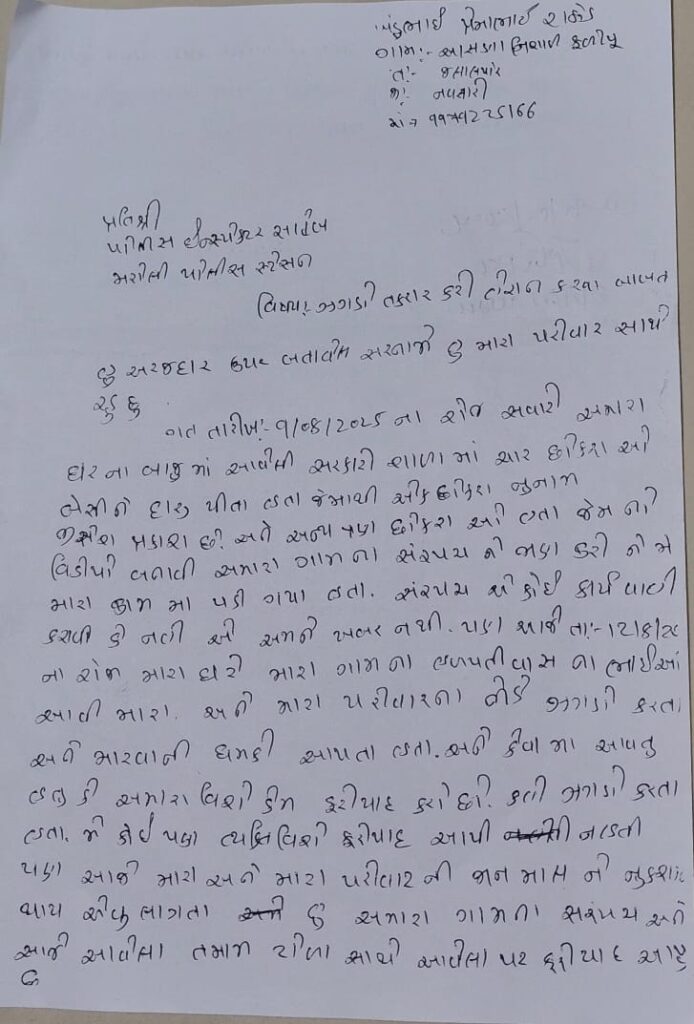 પ્રેમાભાઈ રાઠોડ
ગામ:- આસણા નિશાળ ફળીયુ
તા:- જલાલપોર
જી: નવસારી
પ્રતિશ્રી
પોલીસ ઈન્સ્પેકટર સાહેબ
મરોલી પોલીસ સ્ટેસન
વિષય: ઝગડો તકરાર કરી હેરાન કરવા બાબત
હું અરજદાર ઉપર બતાવેલ સરનામે હું મારા પરીવાર સાથે
રહું છુ
ગત તારીખ:- 9/08/2025 ના રોજ સવારે અમારા
ઘર ના બાજુ માં આવેલી સરકારી શાળા માં ચાર છોકરા ઓ
બેસીને દારૂ પીતા હતા જેમાથી એક છોકરા નુ નામ
પ્રકાશ છે. અને અન્ય ત્રણ છોકરા ઓ હતા જેમ નો
વિડીયો બનાવી અમારા ગામ ના સરપંચ ને જાણ કરી ને મે
મારા કામ મા પડી ગયા હતા. સરપંચ એ કોઈ કાર્યવાહી
કરાવી કે નહી એ અમને ખબર નથી. પણ આજે તા:- 12/8/25
ના રોજ મારા ઘરે મારા ગામ ના હળપતીવાસ ના ભાઈઓ
આવી મારા. અને મારા પરીવારના જોડે ઝગડો કરતા
અને મારવાની ધમકી આપતા હતા. અને કેવા મા આવતુ
હતુ કે અમારા વિશે કેમ ફરીયાદ કરો છો. કહી ઝગડો કરતા
હતા. મે કોઈ પણ વ્યક્તિ વિશે ફરીયાદ આપી નહતી
પણ આજે મારા અને મારા પરીવાર ની જાન માલ ને નુકશાન
થાય એવુ લાગતા હું અમારા ગામના સરપંચ અને
આજે આવેલા તમામ ટોળા સાથે આવેલા પર ફરીયાદ આપુ
છુ